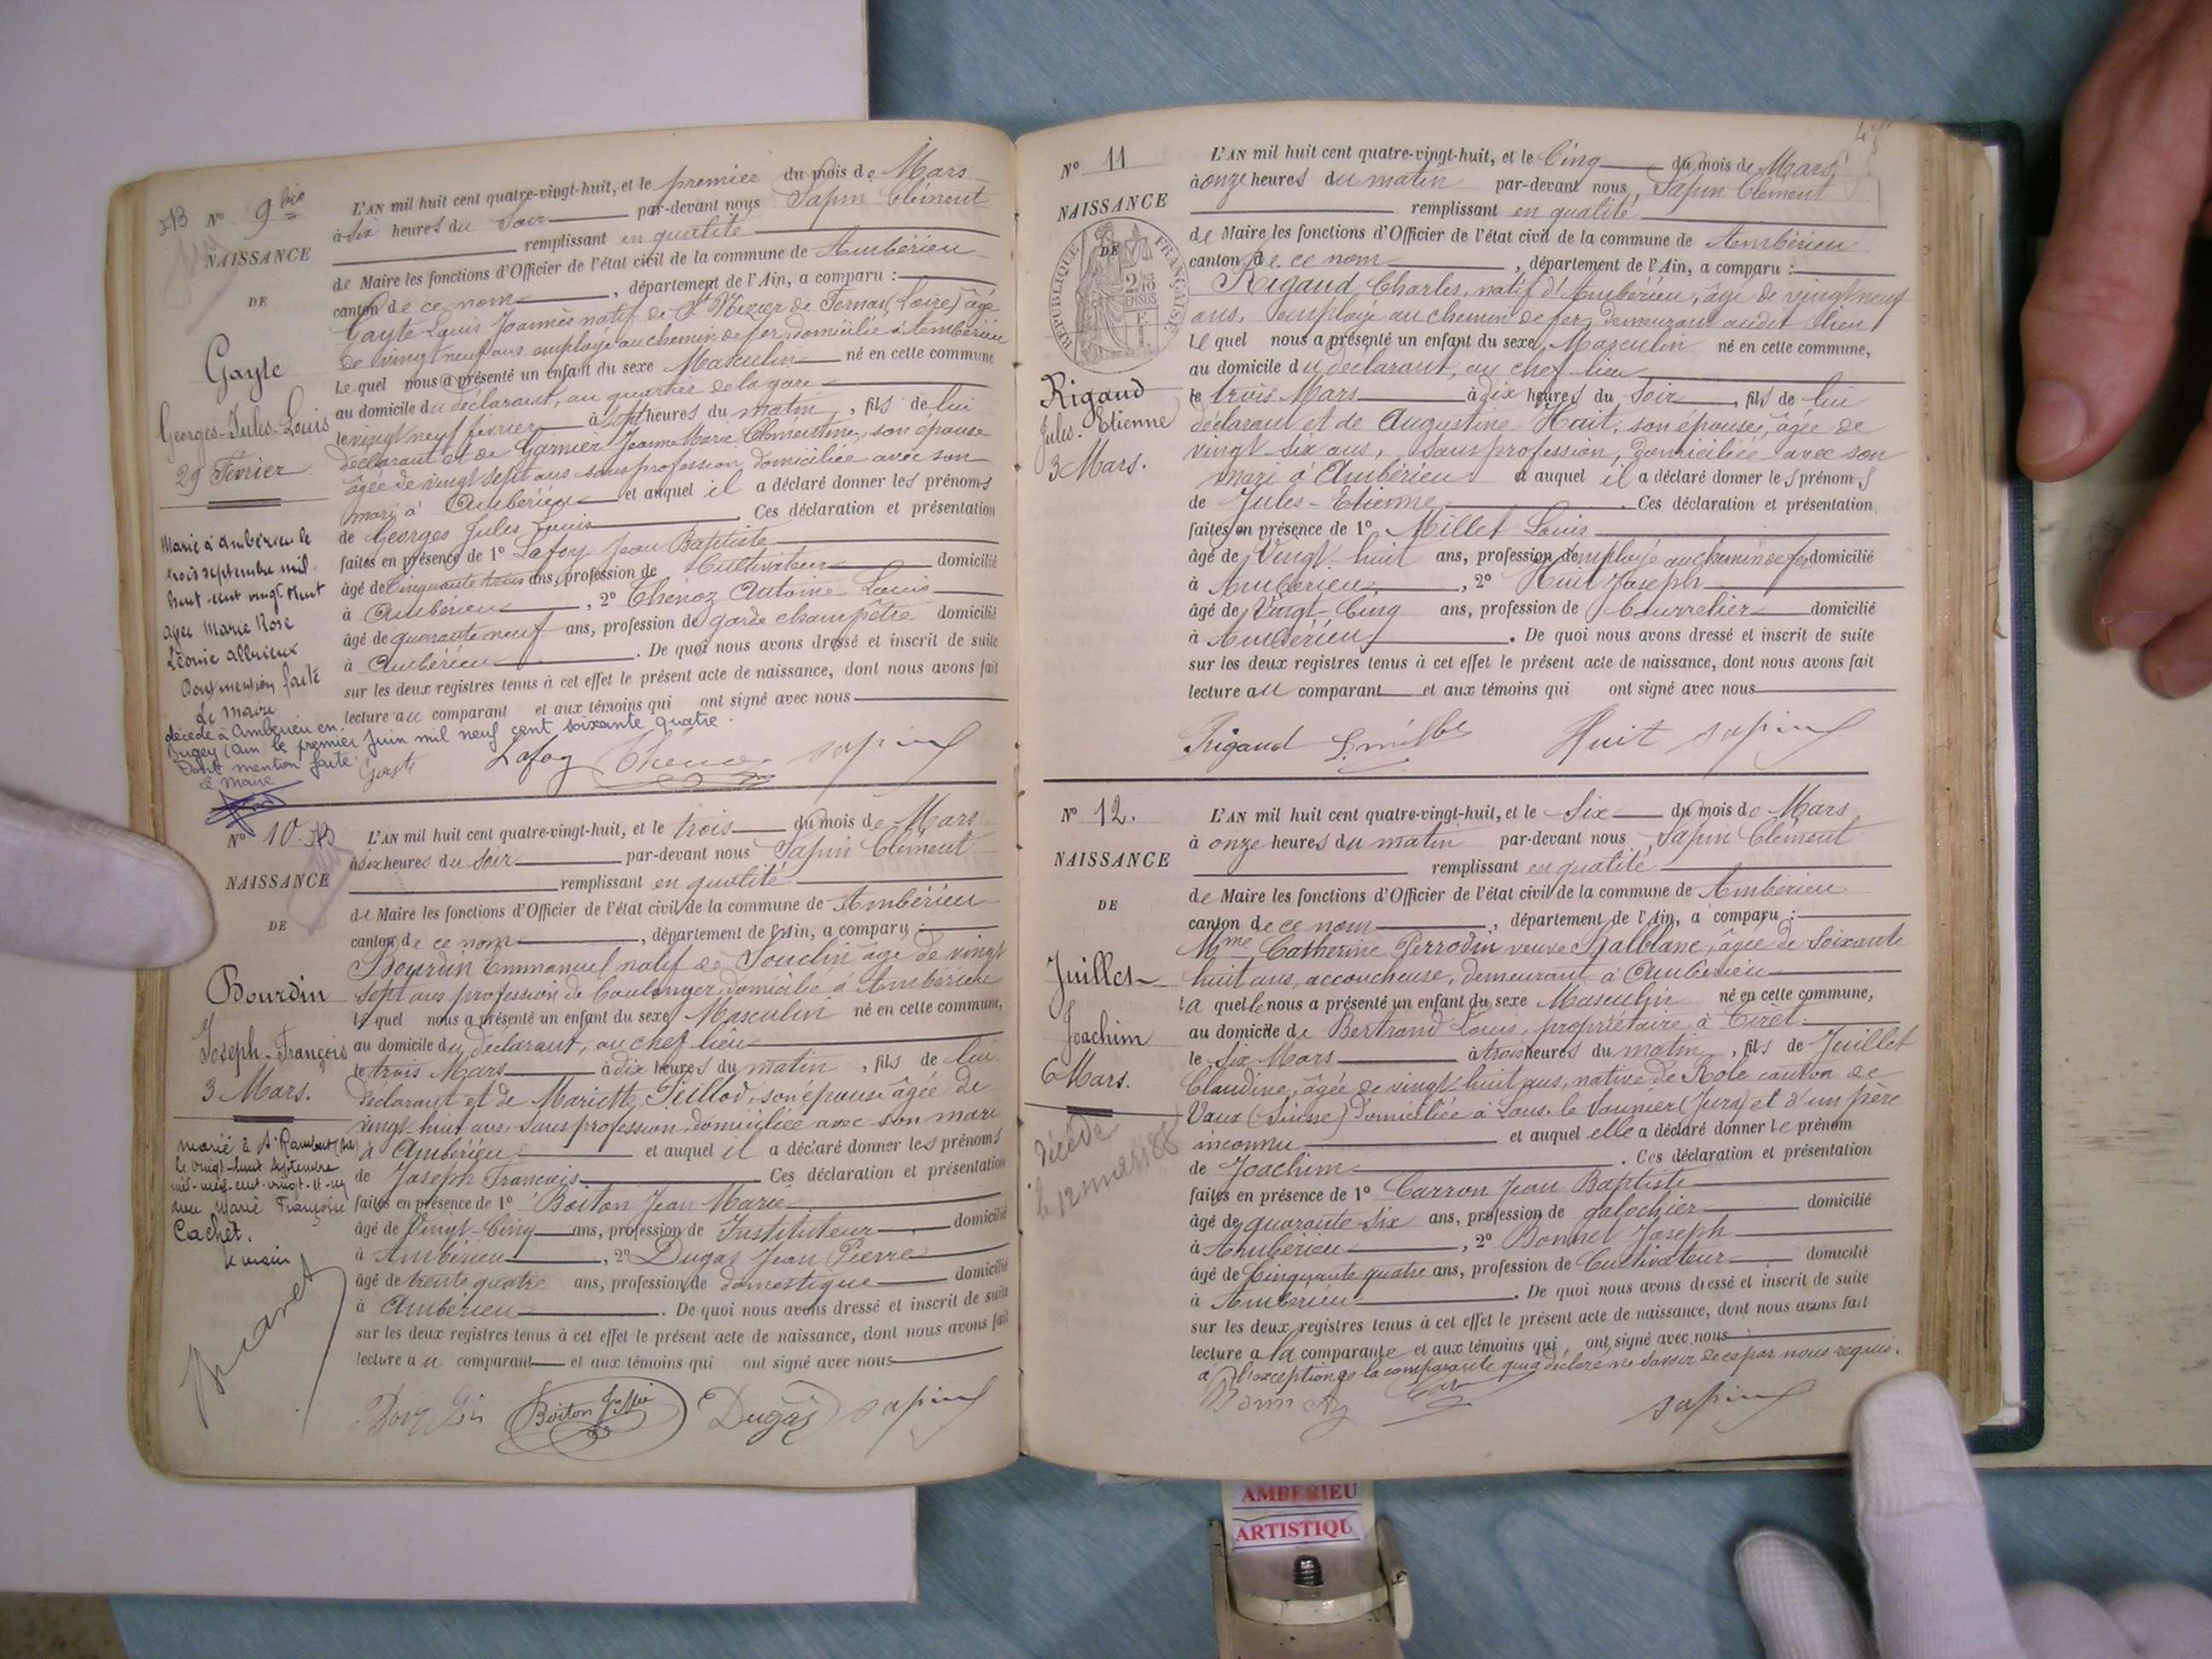 N° 9 bis
NAISSANCE
DE
Gayte
Georges-Jules-Louis
29 Fevrier
Marié à Ambérieu le
trois septembre mil
huit cent vingt huit
avec Marie Rose
Léonie
Dont mention faite
Le Maire
décédé à Ambérieu en
Bugey (Ain) le premier Juin mil neuf cent soixante quatre.
Dont mention faite.
Le Maire
L'AN mil huit cent quatre-vingt-huit, et le premier du mois de Mars
à six heures du Soir par-devant nous Sapin Clément
remplissant en qualité
de Maire les fonctions d'Officier de l'état civil de la commune de Ambérieu
canton de ce nom, département de l'Ain, a comparu :
Gayte Louis Joannès natif de St Nizier de Fornas (Loire) âgé
de vingt neuf ans employé au chemin de fer, domicilié à Ambérieu
Le quel nous a présenté un enfant du sexe Masculin né en cette commune
au domicile du déclarant, au quartier de la gare
le vingt neuf février à sept heures du matin, fils de lui
déclarant et de Garnier Jeanne Marie Clementine, son épouse
âgée de vingt sept ans sans profession domiciliée avec son
mari à Ambérieu et auquel il a déclaré donner les prénoms
de Georges Jules Louis. Ces déclaration et présentation
faites en présence de 1° Lafoy Jean Baptiste
âgé de Cinquante trois ans, profession de Cultivateur domicilié
à Ambérieu, 2° Thénoz Antoine Louis
âgé de quarante neuf ans, profession de garde champêtre domicilié
à Ambérieu. De quoi nous avons dressé et inscrit de suite
sur les deux registres tenus à cet effet le présent acte de naissance, dont nous avons fait
lecture au comparant et aux témoins qui ont signé avec nous
Gayte Lafoy Thenoz Sapin
N° 10.
NAISSANCE
DE
Bourdin
Joseph-François
3 Mars.
marié à St Rambert
le vingt-huit Septembre
mil-neuf-cent-vingt-et-un
avec Marie Françoise
Cachet.
le maire
L'AN mil huit cent quatre-vingt-huit, et le trois du mois de Mars
à six heures du Soir par-devant nous Sapin Clément
remplissant en qualité
de Maire les fonctions d'Officier de l'état civil de la commune de Ambérieu
canton de ce nom, département de l'Ain, a comparu :
Bourdin Emmanuel natif de Souclin âgé de vingt
sept ans profession de boulanger, domicilié à Ambérieu
le quel nous a présenté un enfant du sexe Masculin né en cette commune,
au domicile du déclarant, au chef lieu
le trois Mars à dix heures du matin, fils de lui
déclarant et de Mariette Teillod, son épouse âgée de
vingt huit ans, sans profession, domiciliée avec son mari
à Ambérieu et auquel il a déclaré donner les prénoms
de Joseph François Ces déclaration et présentation
faites en présence de 1° Boiton Jean Marie
âgé de Vingt-Cinq ans, profession de Instituteur, domicilié
à Ambérieu, 2° Dugas Jean Pierre
âgé de trente quatre ans, profession de domestique domicilié
à Ambérieu. De quoi nous avons dressé et inscrit de suite
sur les deux registres tenus à cet effet le présent acte de naissance, dont nous avons fait
lecture au comparant et aux témoins qui ont signé avec nous
Bourdin Boiton Dugas Sapin
N° 11
NAISSANCE
DE
RÉPUBLIQUE FRANÇAISE
Rigaud
Jules-Etienne
3 Mars.
L'AN mil huit cent quatre-vingt-huit, et le Cinq du mois de Mars
à onze heures du matin par-devant nous, Sapin Clément
remplissant en qualité
de Maire les fonctions d'Officier de l'état civil de la commune de Ambérieu
canton de ce nom, département de l'Ain, a comparu :
Rigaud Charles, natif d'Ambérieu, âgé de vingt neuf
ans, employé au chemin de fer, demeurant audit lieu
le quel nous a présenté un enfant du sexe Masculin né en cette commune,
au domicile du déclarant, au chef lieu
le trois Mars à dix heures du Soir, fils de lui
déclarant et de Augustine Huit, son épouse, âgée de
vingt-six ans, sans profession, domiciliée avec son
mari à Ambérieu et auquel il a déclaré donner les prénoms
de Jules-Etienne. Ces déclaration et présentation
faites en présence de 1° Millet Louis
âgé de Vingt-huit ans, profession d'employé au chemin de fer domicilié
à Ambérieu, 2° Huit Joseph
âgé de Vingt-Cinq ans, profession de Bourrelier domicilié
à Ambérieu. De quoi nous avons dressé et inscrit de suite
sur les deux registres tenus à cet effet le présent acte de naissance, dont nous avons fait
lecture au comparant et aux témoins qui ont signé avec nous
Rigaud L. Millet Huit Sapin
N° 12.
NAISSANCE
DE
Juillet
Joachim
6 Mars.
décédé
le 12 mars 188
L'AN mil huit cent quatre-vingt-huit, et le Six du mois de Mars
à onze heures du matin par-devant nous, Sapin Clément
remplissant en qualité
de Maire les fonctions d'Officier de l'état civil de la commune de Ambérieu
canton de ce nom, département de l'Ain, a comparu :
Mme Catherine Perrodin veuve Malblanc, âgée de Soixante
huit ans, accoucheuse, demeurant à Ambérieu
la quelle nous a présenté un enfant du sexe Masculin né en cette commune,
au domicile de Bertrand Louis, propriétaire à Tiret
le Six Mars à trois heures du matin, fils de Juillet
Claudine, âgée de vingt huit ans, native de Role canton de
Vaux (Suisse) domiciliée à Lons-le-Saunier (Jura) et d'un père
inconnu et auquel elle a déclaré donner le prénom
de Joachim. Ces déclaration et présentation
faites en présence de 1° Carron Jean Baptiste
âgé de quarante-six ans, profession de galochier domicilié
à Ambérieu, 2° Bonnet Joseph
âgé de Cinquante quatre ans, profession de Cultivateur domicilié
à Ambérieu. De quoi nous avons dressé et inscrit de suite
sur les deux registres tenus à cet effet le présent acte de naissance, dont nous avons fait
lecture a la comparante et aux témoins qui ont signé avec nous
à l'exception de la comparante qui a déclaré ne savoir de ce par nous requis.
Sapin
AMBERIEU
ARTISTIQU